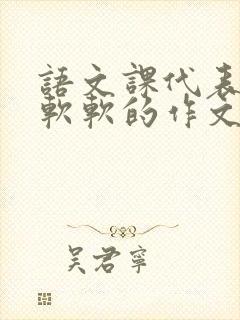 語文課代表
軟軟的作文
吴君寧